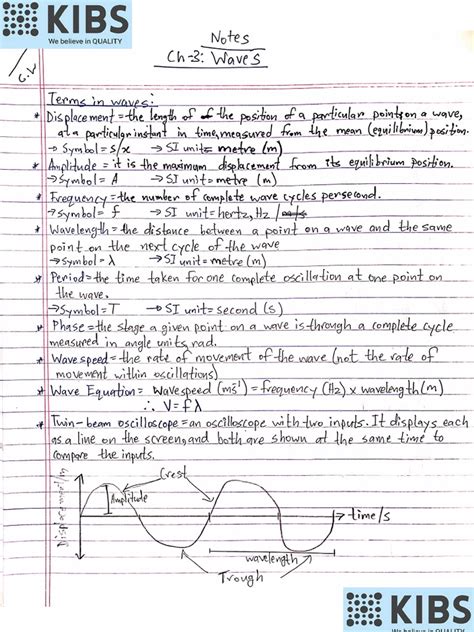 KIBS
We believe in QUALITY
KIBS
We believe in QUALITY
Notes
Ch-3: Waves
Terms in waves:
* Displacement = the length of of the position of a particular point on a wave,
at a particular instant in time, measured from the mean (equilibrium) position.
→ Symbol = s/x → SI unit = metre (m)
* Amplitude = it is the maximum displacement from its equilibrium position.
→ Symbol = A → SI unit = metre (m)
* Frequency = the number of complete wave cycles per second.
→ Symbol = f → SI unit = hertz, Hz /
* Wavelength = the distance between a point on a wave and the same
point on the next cycle of the wave
→ Symbol = λ → SI unit = metre (m)
* Period = the time taken for one complete oscillation at one point on
the wave.
→ Symbol = T → SI unit = second (s)
* Phase = the stage a given point on a wave is through a complete cycle
measured in angle units, rad.
* Wave speed = the rate of movement of the wave (not the rate of
movement within oscillations)
* Wave Equation = Wave speed (ms⁻¹) = frequency (Hz) x wavelength (m)
∴ V = fλ
* Twin-beam oscilloscope = an oscilloscope with two inputs. It displays each
as a line on the screen, and both are shown at the same time to
compare the inputs.
Crest
Amplitude
Displacement/m
→ time/s
wavelength
Trough
KIBS
We believe in QUALITY